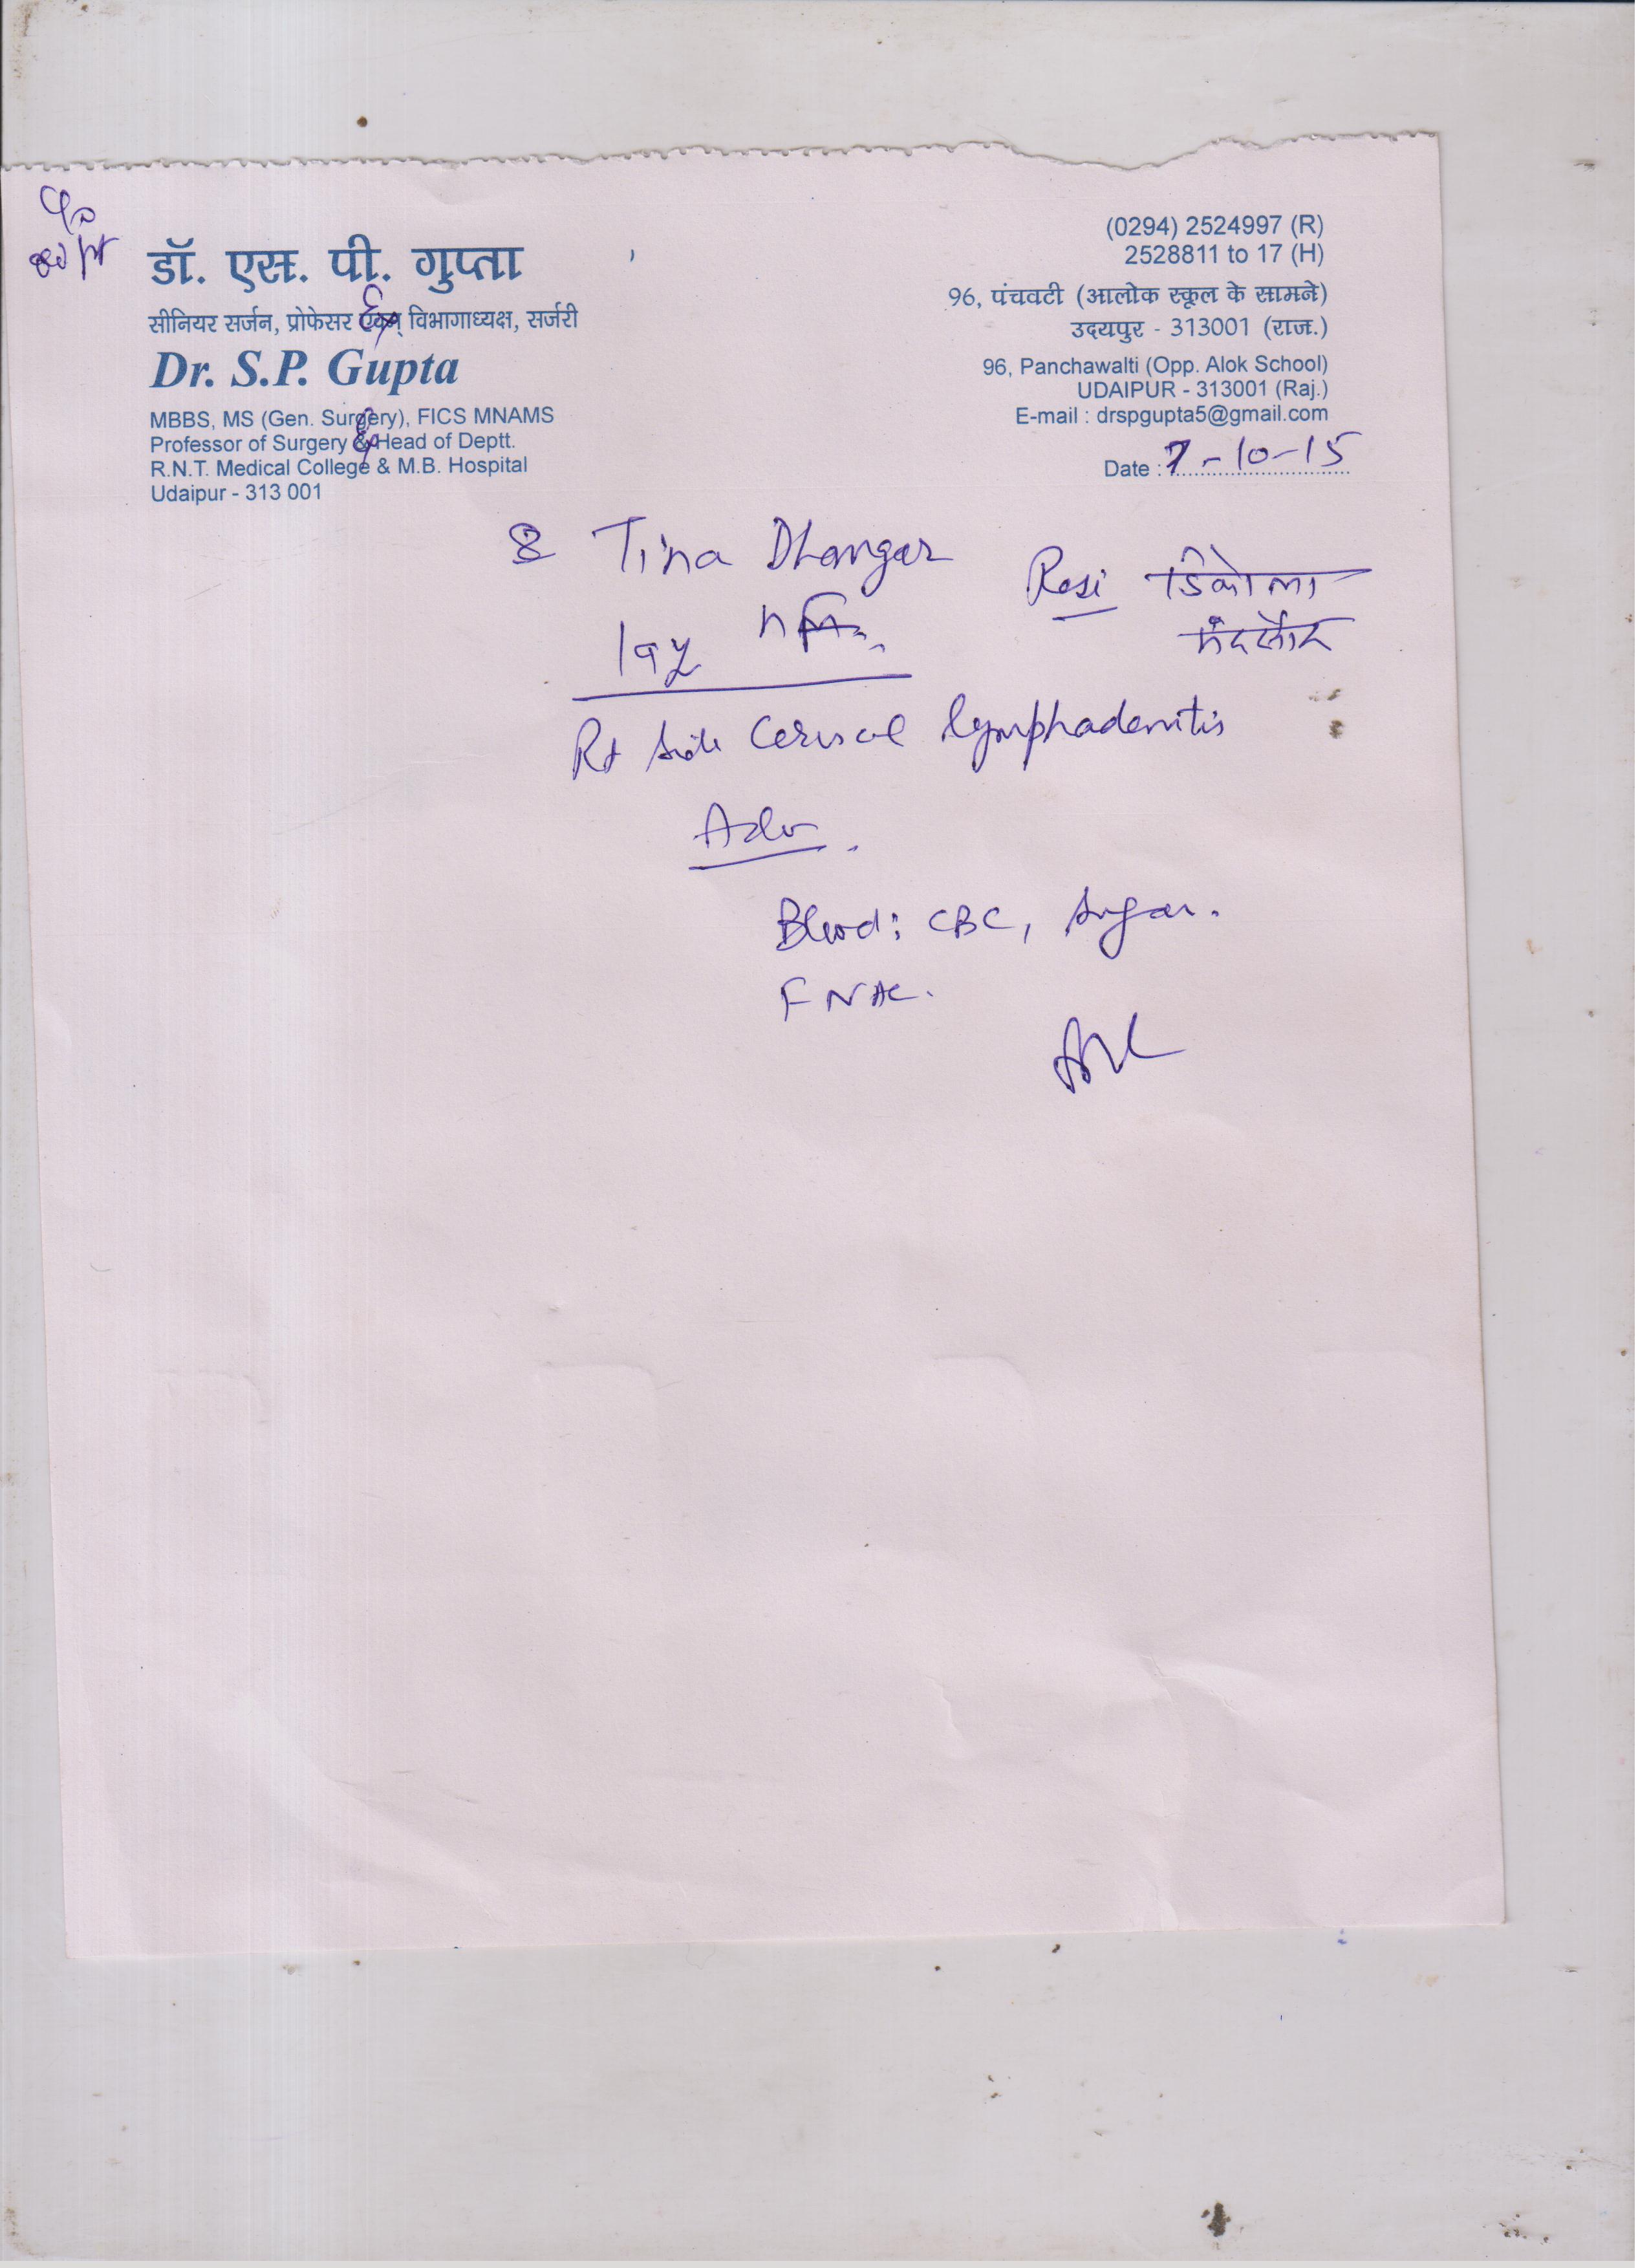 डॉ. एस. पी. गुप्ता
सीनियर सर्जन, प्रोफेसर एवम् विभागाध्यक्ष, सर्जरी
Dr. S.P. Gupta
MBBS, MS (Gen. Surgery), FICS MNAMS
Professor of Surgery & Head of Deptt.
R.N.T. Medical College & M.B. Hospital
Udaipur - 313 001
(0294) 2524997 (R)
2528811 to 17 (H)
96, पंचवटी (आलोक स्कूल के सामने)
उदयपुर - 313001 (राज.)
96, Panchawalti (Opp. Alok School)
UDAIPUR - 313001 (Raj.)
E-mail : drspgupta5@gmail.com
Date : 7-10-15
Tina Dhangar
Resi डिकोला
मंदसौर
19y
Rt side Cervical lymphadenitis
Adv.
Blood: CBC, Sugar.
FNAC.